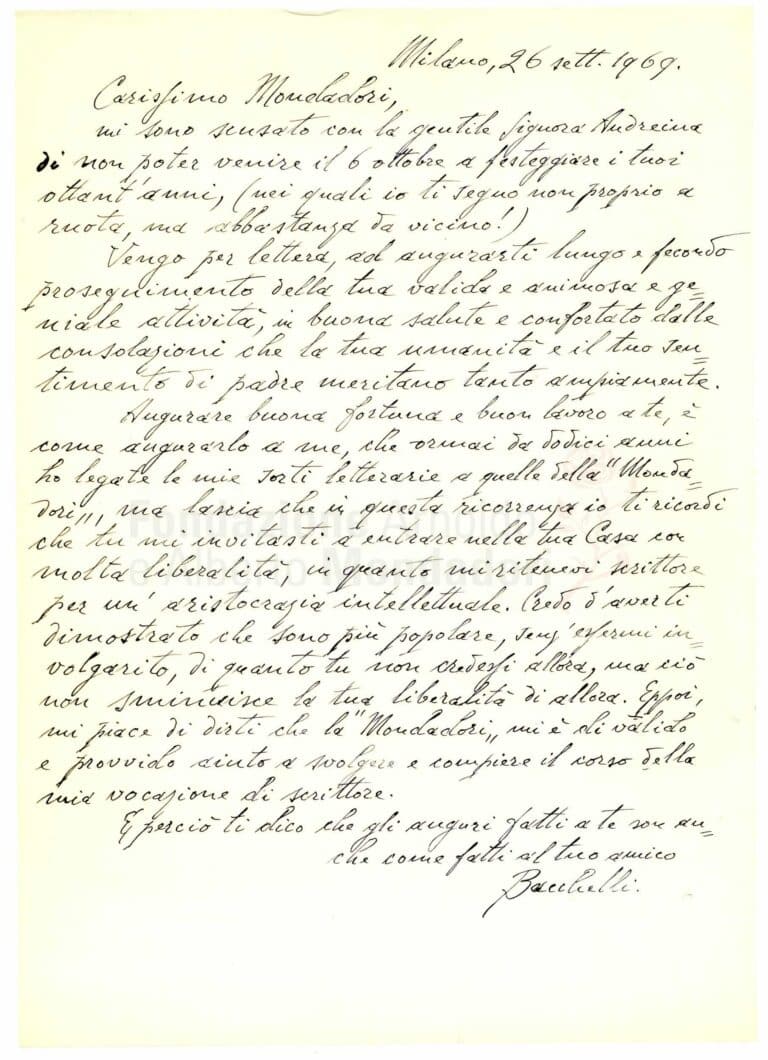 Milano, 26 sett. 1969.
Carissimo Mondadori,
mi sono scusato con la gentile signora Andreina
di non poter venire il 6 ottobre a festeggiare i tuoi
ottant'anni, (nei quali io ti seguo non proprio a
ruota, ma abbastanza da vicino!)
Vengo per lettera, ad augurarti lungo e fecondo
proseguimento della tua valida e animosa e ge=
niale attività, in buona salute e confortato dalle
consolazioni che la tua umanità e il tuo sen=
timento di padre meritano tanto ampiamente.
Augurare buona fortuna e buon lavoro a te, è
come augurarlo a me, che ormai da dodici anni
ho legate le mie sorti letterarie a quelle della "Monda=
dori„, ma lascia che in questa ricorrenza io ti ricordi
che tu mi invitasti a entrare nella tua Casa con
molta liberalità, in quanto mi ritenevi scrittore
per un'aristocrazia intellettuale. Credo d'averti
dimostrato che sono più popolare, senz'essermi in=
volgarito, di quanto tu non credessi allora, ma ciò
non sminuisce la tua liberalità di allora. Eppoi,
mi piace di dirti che la "Mondadori„ mi è di valido
e provvido aiuto a svolgere e compiere il corso della
mia vocazione di scrittore.
E perciò ti dico che gli auguri fatti a te son an=
che come fatti al tuo amico
Bacchelli.